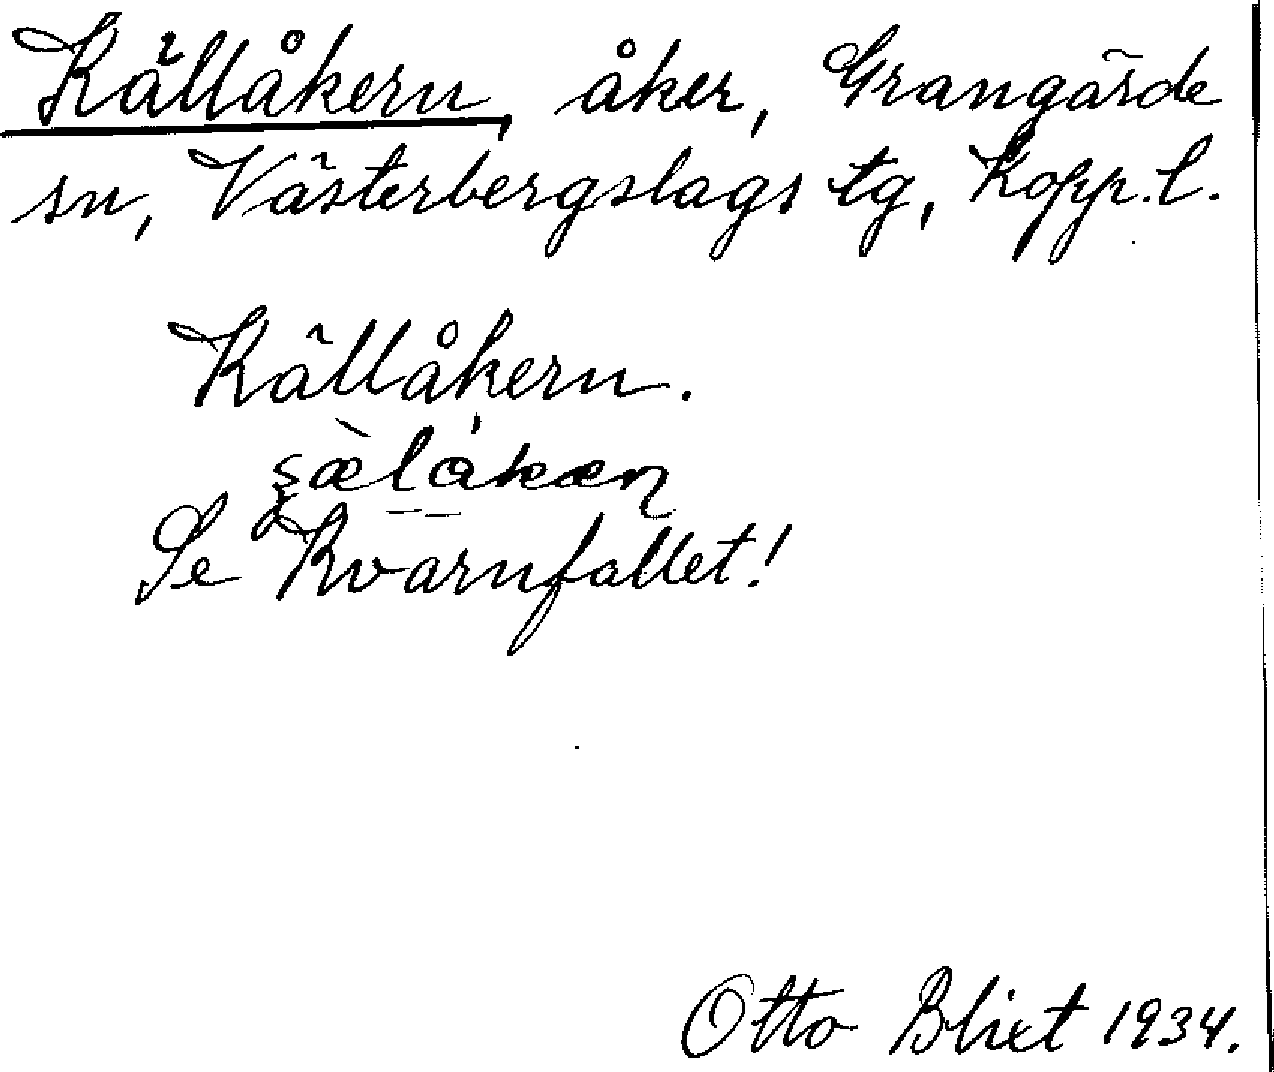 Källåkern, åker, Grangärde
sn, Västerbergslags tg, Kopp. l.
Källåkern.
Se Kvarnfallet!
Otto Blixt 1934.